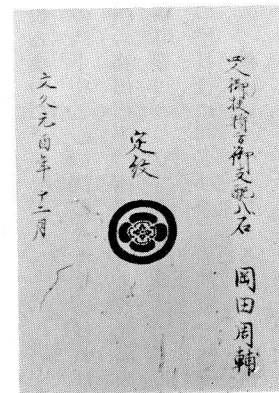 四人御扶持方御支配八石 岡田周輔
定紋
文久元酉年 十二月